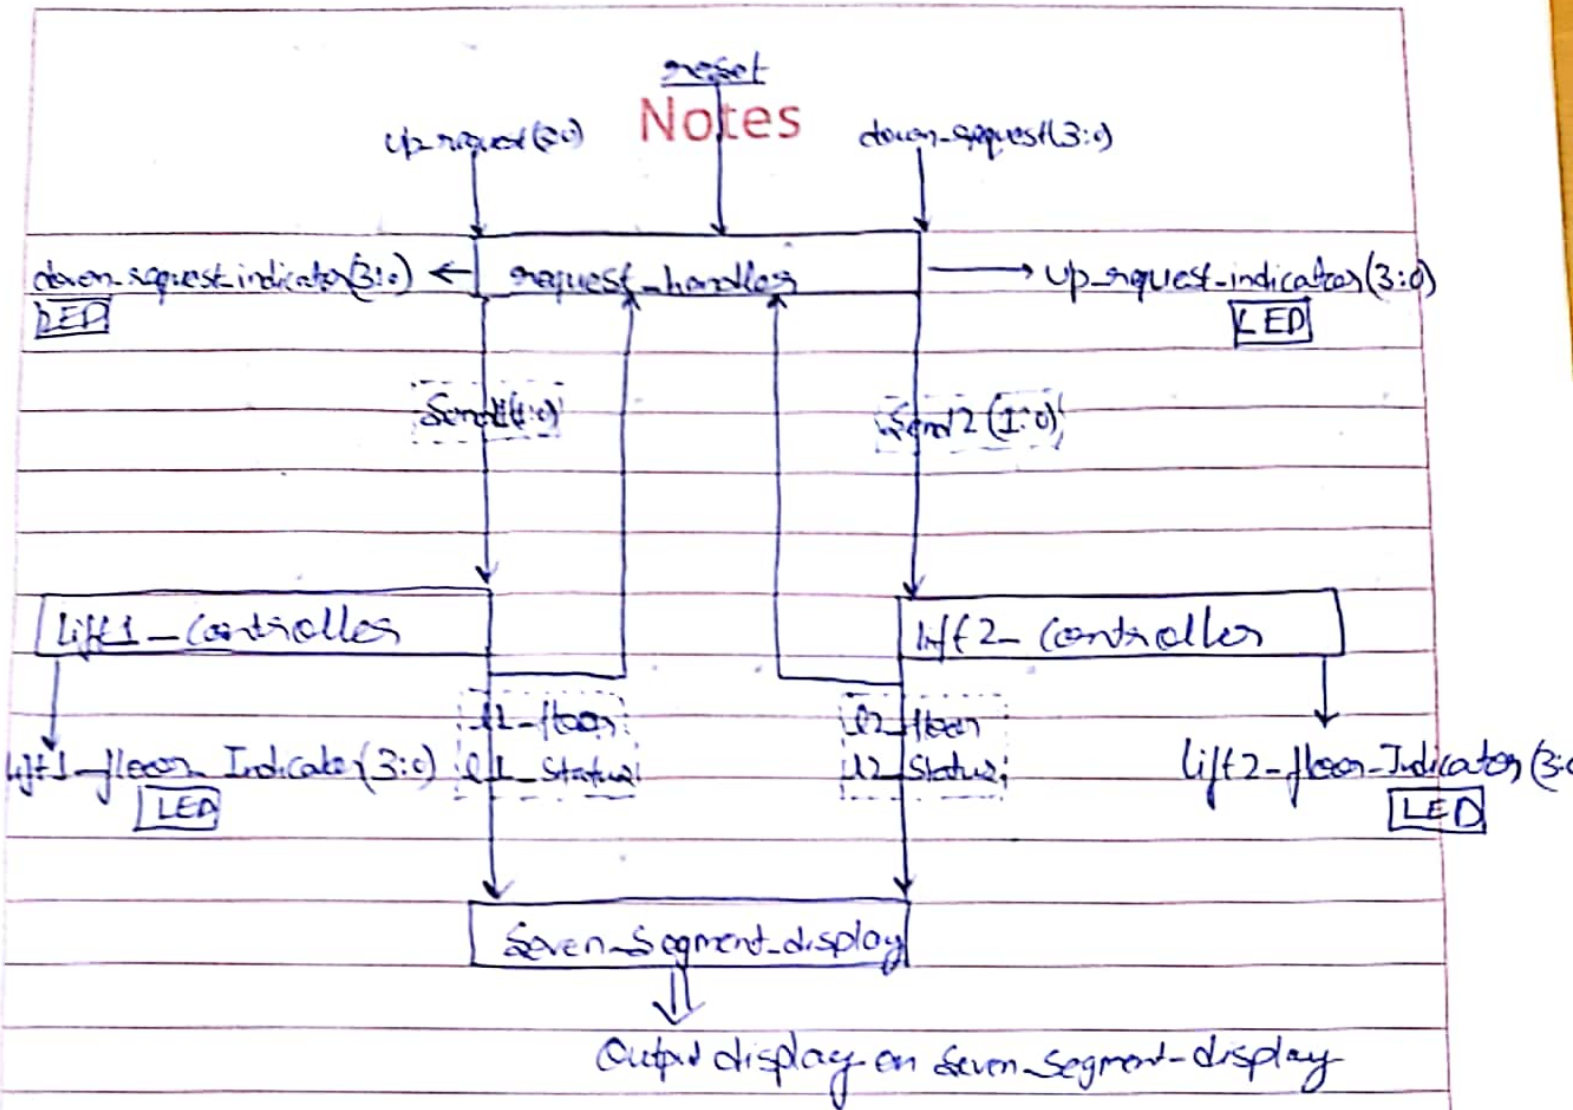 reset
Notes
up_request(3:0)
down_request(3:0)
down_request_indicator(3:0)
request_handler
up_request_indicator(3:0)
LED
LED
Send1(1:0)
Send2(1:0)
lift1_controller
lift2_controller
l1_floor
l2_floor
lift1_floor_Indicator(3:0)
l1_status
l2_status
lift2_floor_Indicator(3:0
LED
LED
Seven_Segment_display
Output display on Seven_Segment_display